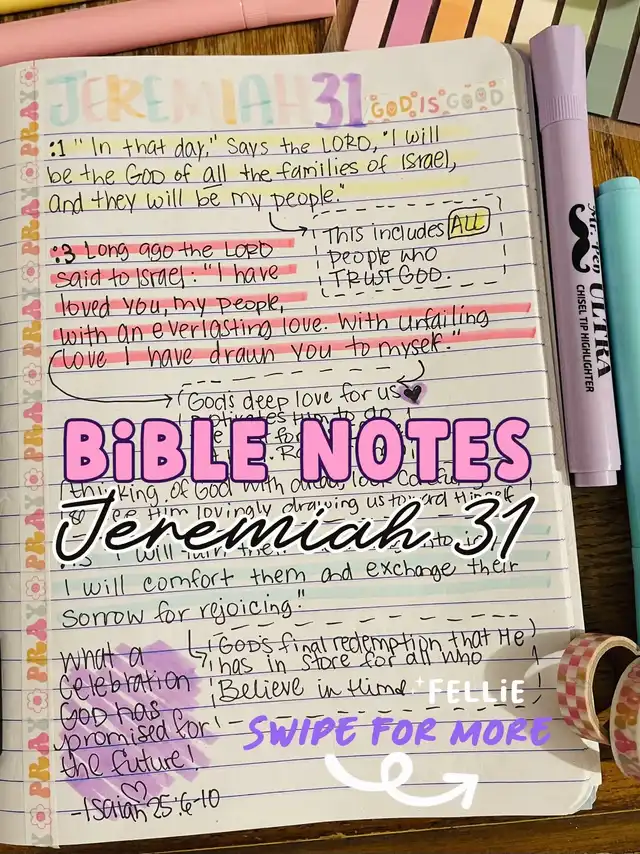 JEREMIAH 31 GOD IS GOOD
:1 "In that day," says the LORD, "I will
be the GOD of all the families of Israel,
and they will be my people."
This includes ALL
people who
TRUST GOD.
:3 Long ago the LORD
said to Israel: "I have
loved you, my people,
with an everlasting love. With unfailing
love I have drawn you to myself."
God's deep love for us
BiBLE NOTES
thinking of God with
see Him lovingly drawing us toward Himself
Jeremiah 31
I will comfort them and exchange their
sorrow for rejoicing."
God's final redemption that He
has in store for all who
Believe in Him
What a
celebration
God has
promised for
the future!
-Isaiah 25:6-10
FELLiE
SWIPE FOR MORE
PRAY
PRAY
PRAY
PRAY
PRAY
PRAY
Mr. Pen ULTRA
CHISEL TIP HIGHLIGHTER